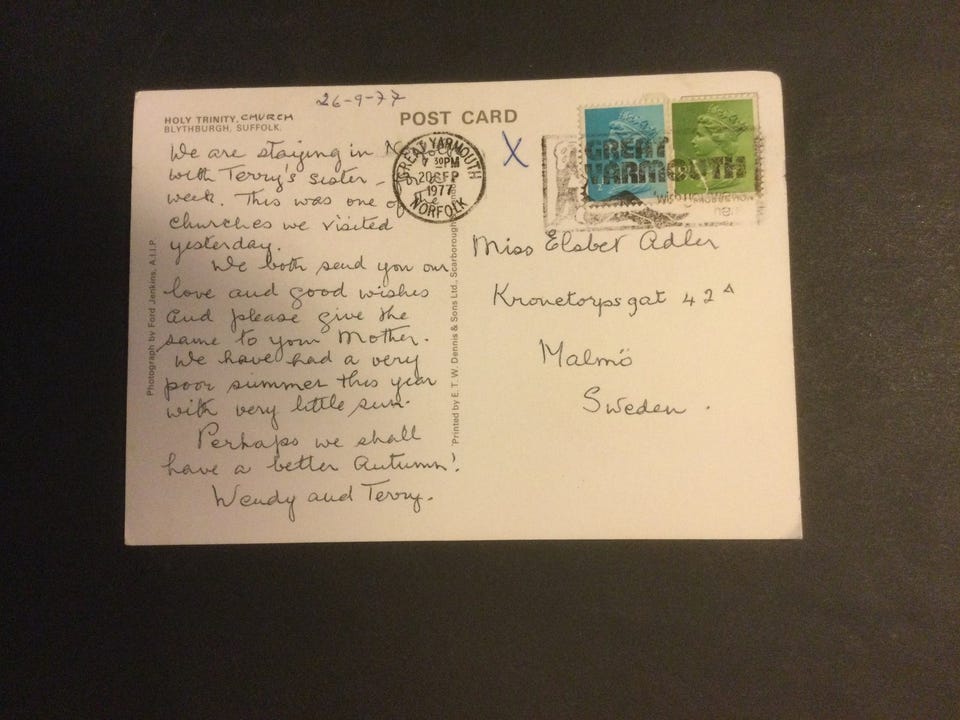 26-9-77
HOLY TRINITY, CHURCH
BLYTHBURGH, SUFFOLK.
POST CARD
X
We are staying in
with Terry's sister -
week. This was one of
churches we visited
yesterday.
We both send you our
love and good wishes
and please give the
same to your Mother.
We have had a very
poor summer this year
with very little sun.
Perhaps we shall
have a better Autumn!
Wendy and Terry.
Photograph by Ford Jenkins, A.I.I.P.
Printed by E. T. W. Dennis & Sons Ltd., Scarborough
GREAT YARMOUTH
7 30PM
20 SEP
1977
NORFOLK
GREAT
YARMOUTH
here
Miss Elsbet Adler
Kronetorpsgat 42A
Malmö
Sweden.